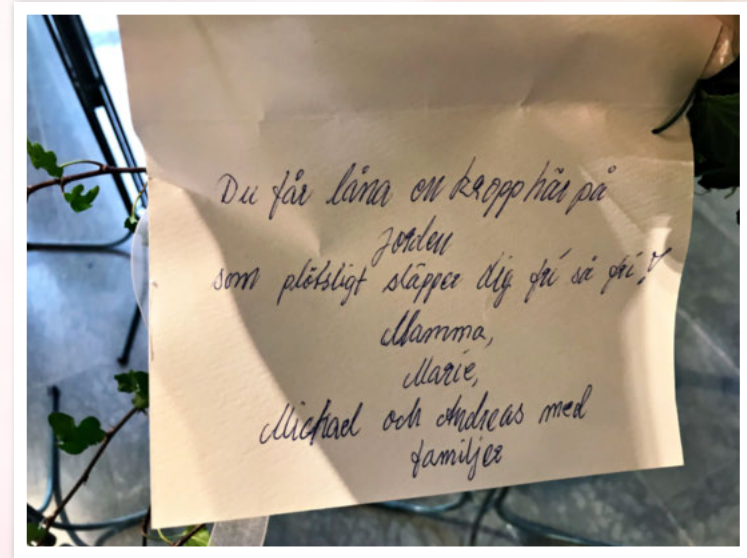 Du får låna en kropp här på
Jorden
som plötsligt släpper dig fri så fri!
Mamma,
Marie,
Michael och Andreas med
familjer